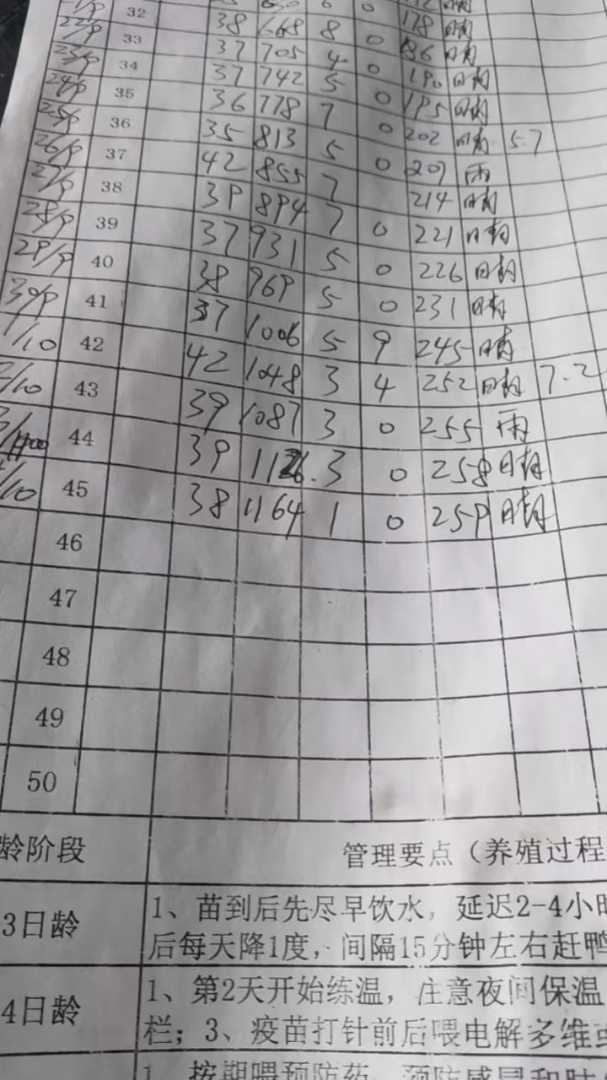 32
22/9 33 38 668 8 0 178 晴
23/9 34 37 705 4 0 186 晴
24/9 35 37 742 5 0 190 晴
25/9 36 36 778 7 0 195 晴
26/9 37 35 813 5 0 202 晴 5.7
27/9 38 42 855 7 0 207 雨
28/9 39 39 894 7 0 214 晴
29/9 40 37 931 5 0 221 晴
30/9 41 38 969 5 0 226 晴
1/10 42 37 1006 5 0 231 晴
43 42 1048 3 9 245 晴
44 39 1087 3 4 252 晴 7.2
45 39 1126 3 0 255 雨
38 1164 1 0 258 晴
259 晴
46
47
48
49
50
龄阶段 管理要点（养殖过程
3日龄 1、苗到后先尽早饮水，延迟2-4小时
后每天降1度，间隔15分钟左右赶鸭
4日龄 1、第2天开始练温，注意夜间保温
栏；3、疫苗打针前后喂电解多维或
1、按期喂预防药，预防感冒和